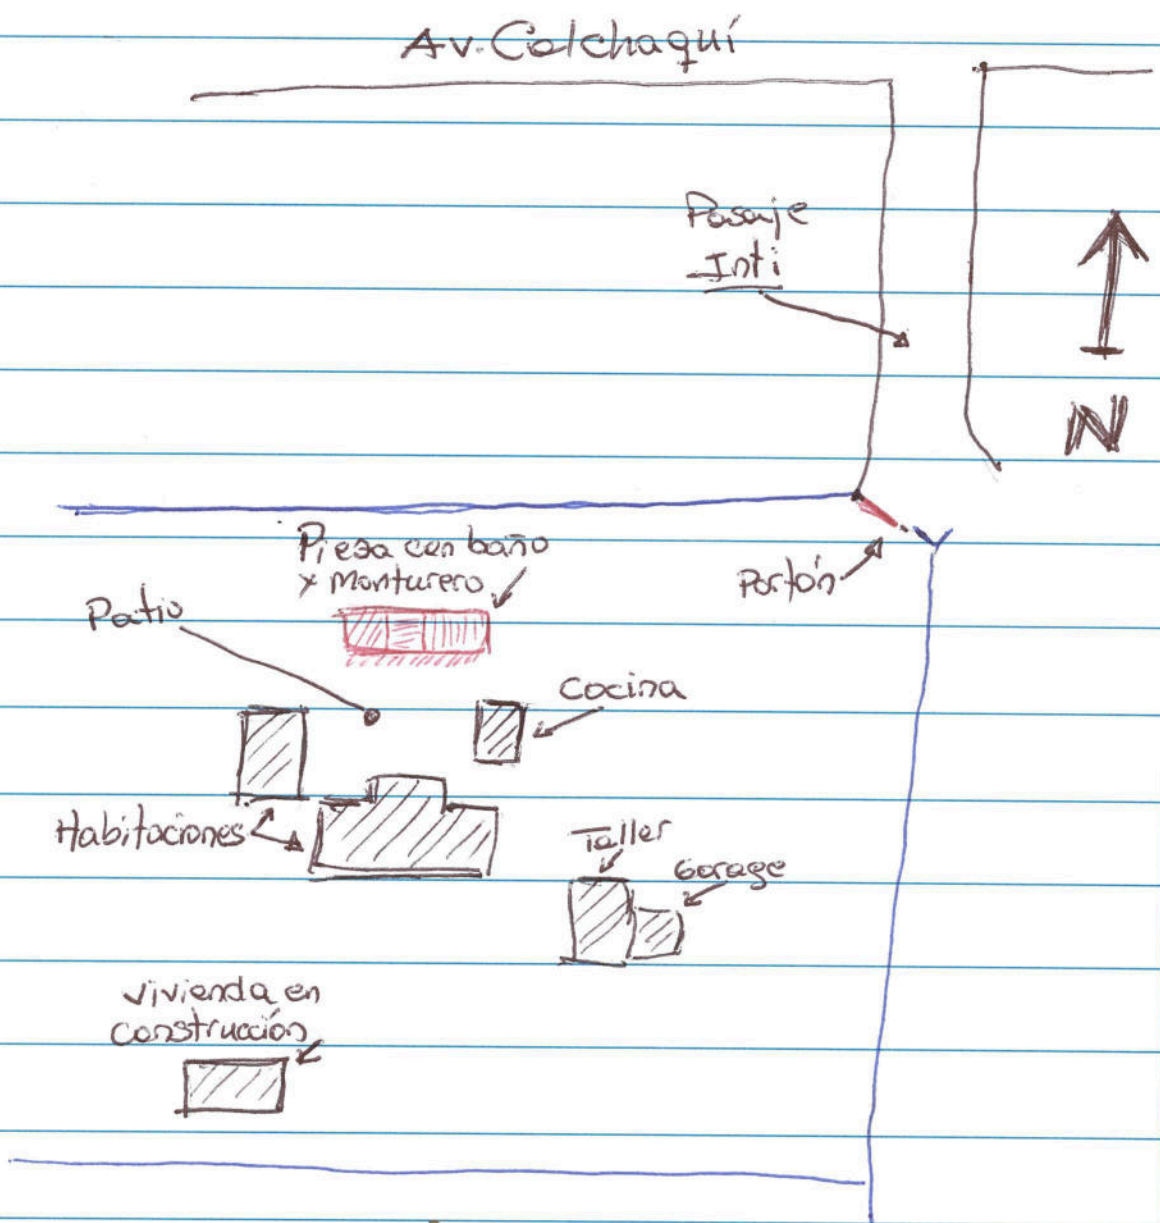 Av. Calchaquí
Pasaje
Inti
N
Pieza con baño
y Monturero
Portón
Patio
Cocina
Habitaciones
Taller
Garage
vivienda en
construcción